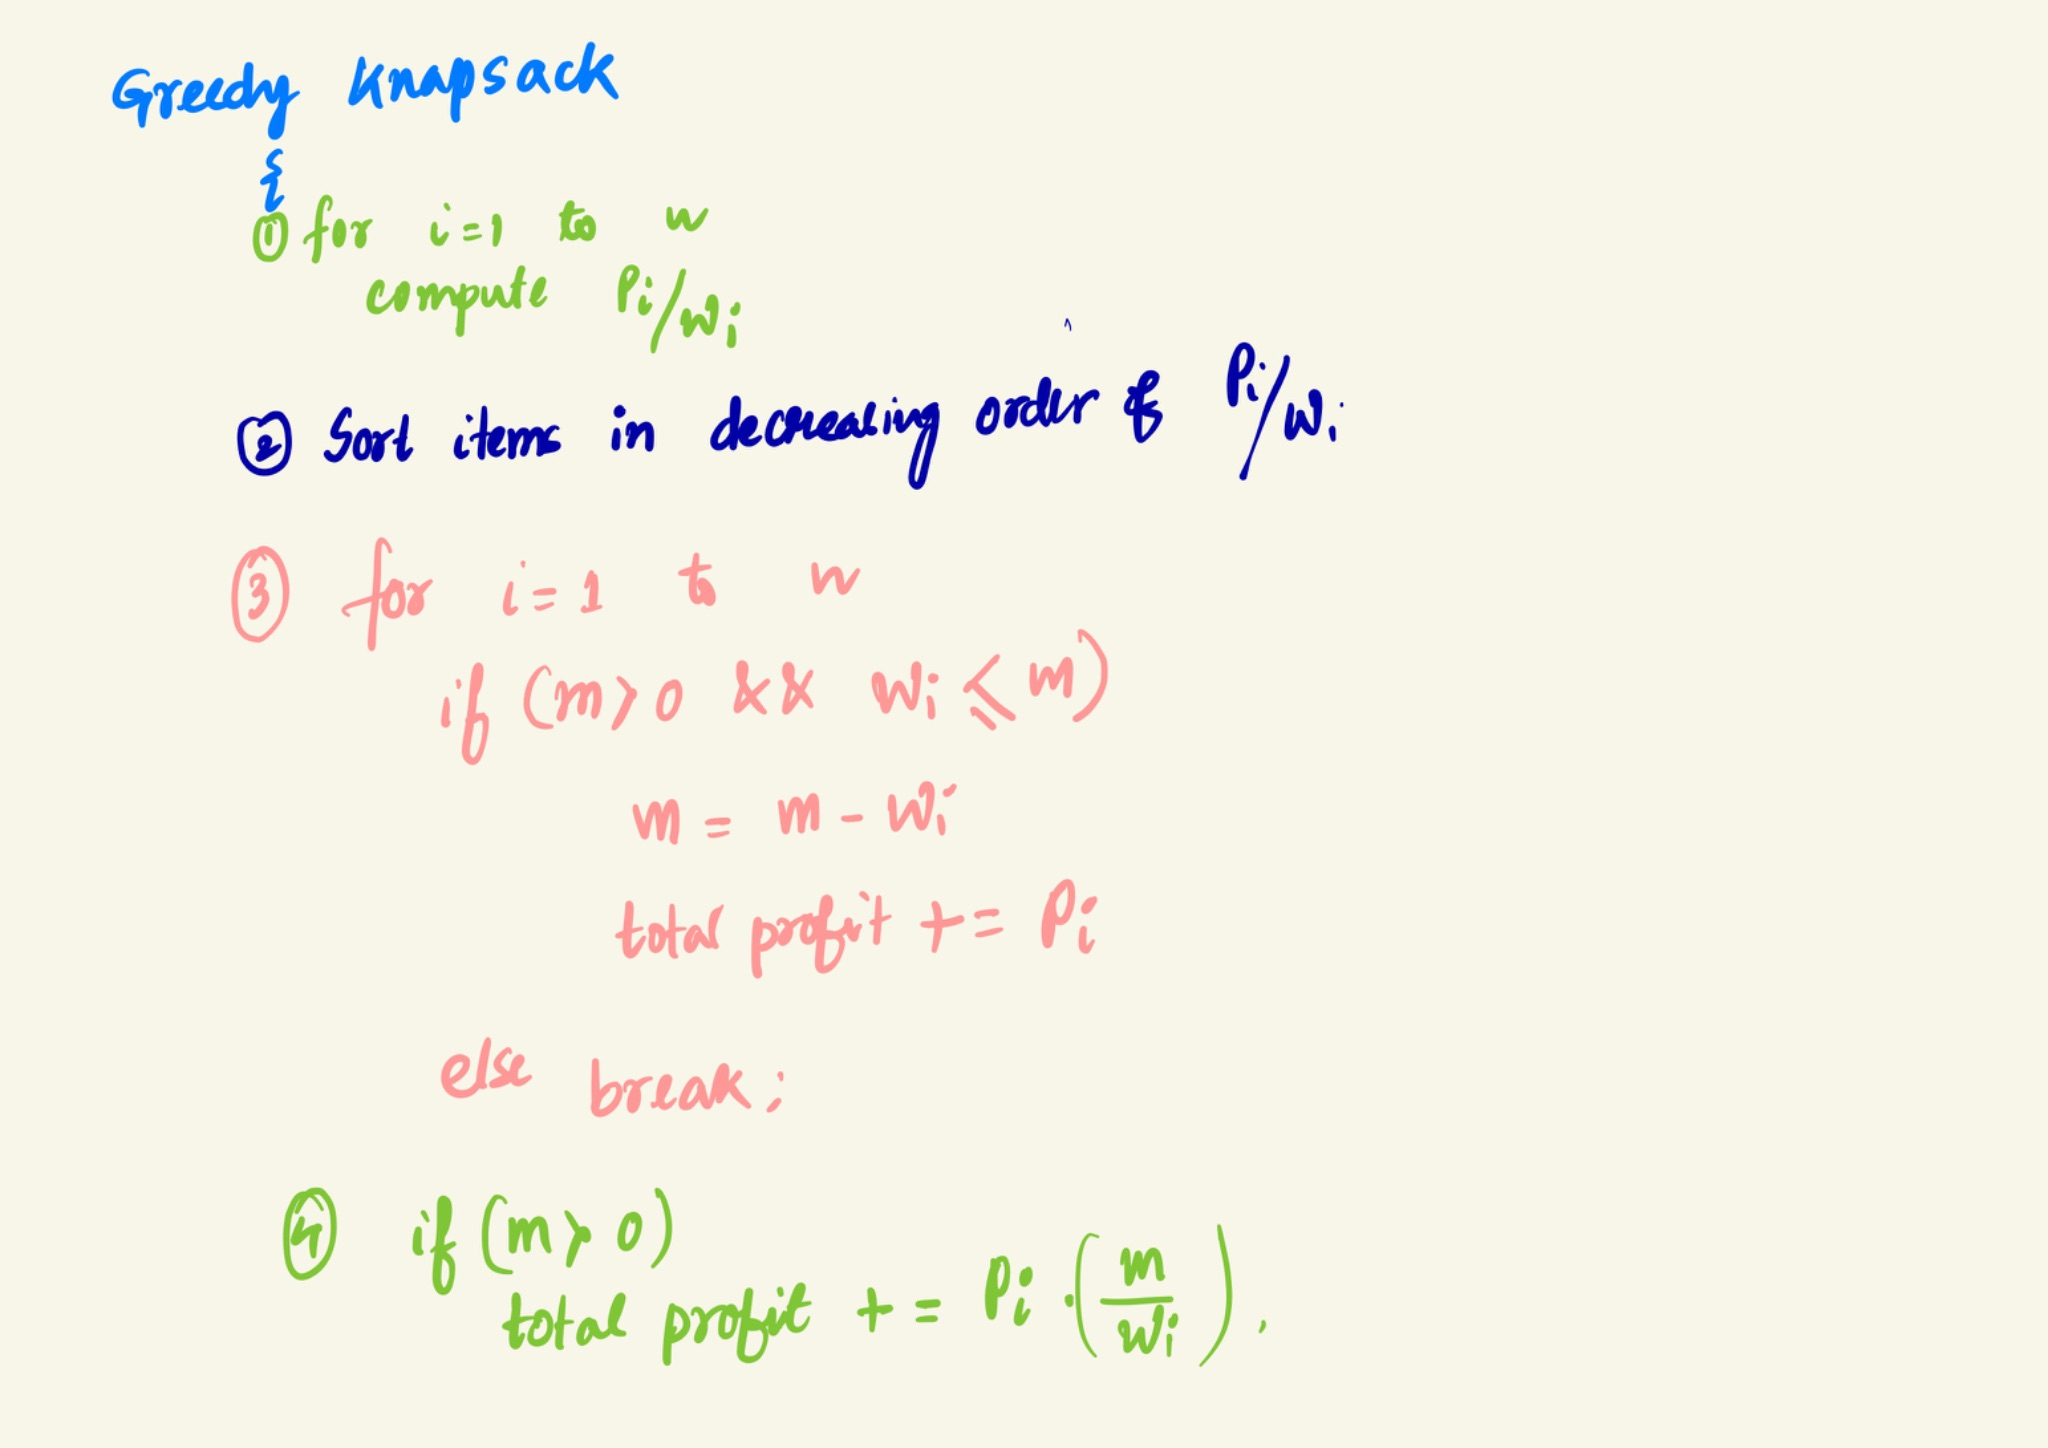 Greedy Knapsack
{
① for i=1 to n
compute Pi/wi
② Sort items in decreasing order of Pi/wi
③ for i=1 to n
if (m>0 && wi ≤ m)
m = m - wi
total profit += Pi
else break;
④ if (m>0)
total profit += Pi · (m/wi).